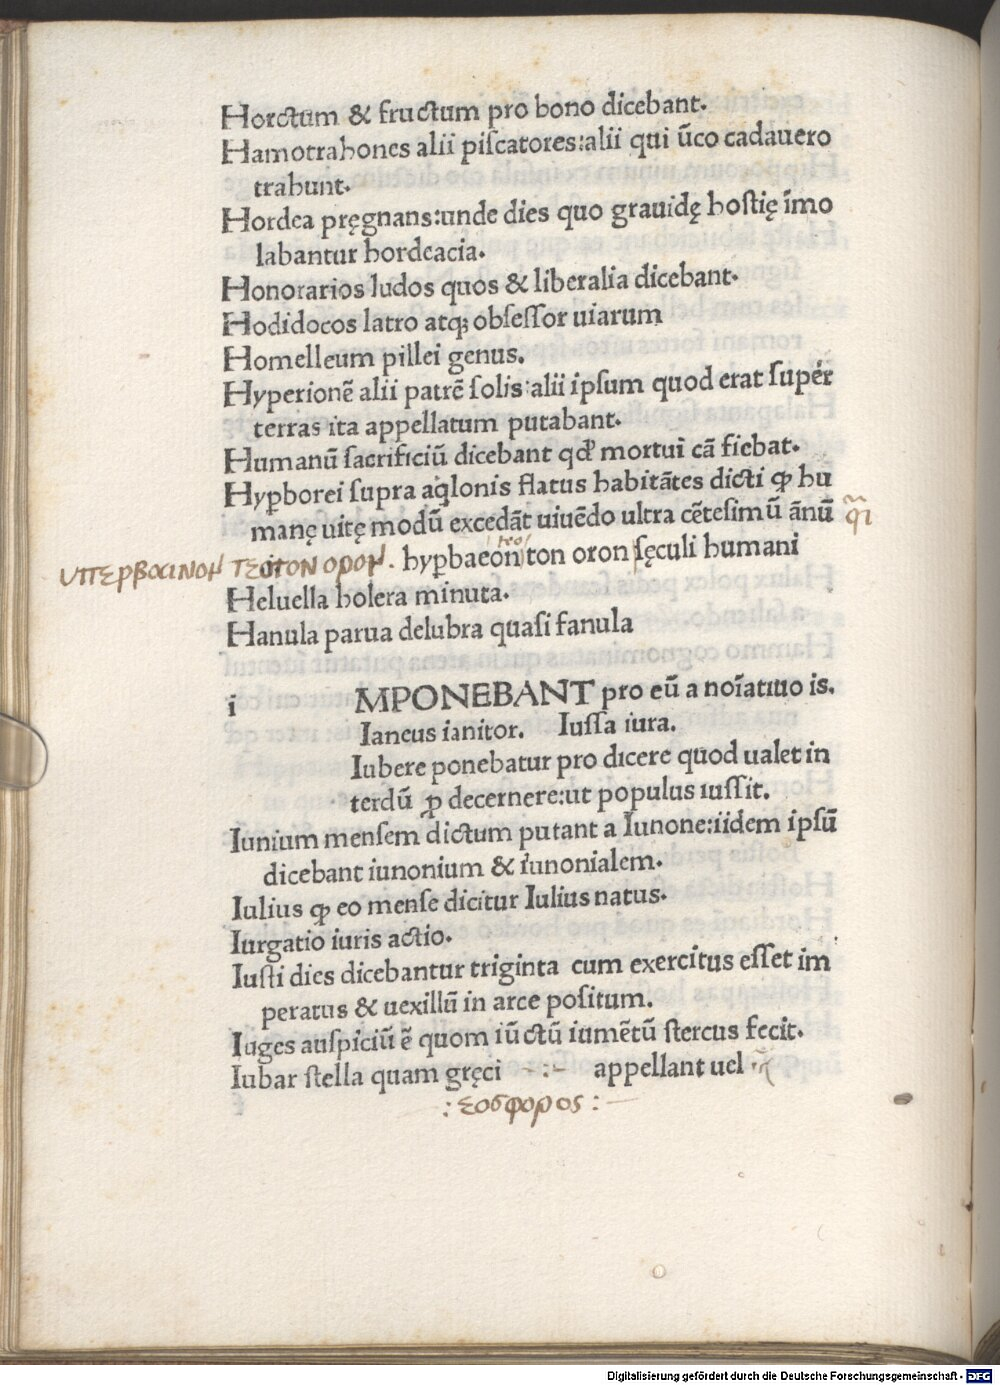 Horctum & fructum pro bono dicebant.
Hamotrahones alii piscatores:alii qui ūco cadauero
trahunt.
Hordea pręgnans:unde dies quo grauidę hostię īmo
labantur hordeacia.
Honorarios ludos quos & liberalia dicebant.
Hodidocos latro atqꝫ obsessor uiarum
Homelleum pillei genus.
Hyperionē alii patrē solis:alii ipsum quod erat super
terras ita appellatum putabant.
Humanū sacrificiū dicebant qđ mortui cā fiebat.
Hyꝑborei supra aqlonis flatus habitātes dicti ꝙ hu
manę uitę modū excedāt uiuēdo ultra cētesimū ānū
υπερβαινον τεοτον ορον. hyꝑbaeon ton oron sęculi humani
teo
Heluella holera minuta.
Hanula parua delubra quasi fanula
i MPONEBANT pro eū a noīatiuo is.
Ianeus ianitor. Iussa iura.
Iubere ponebatur pro dicere quod ualet in
terdū ꝓ decernere:ut populus iussit.
Iunium mensem dictum putant a Iunone:iidem ipsū
dicebant iunonium & iunonialem.
Iulius ꝙ eo mense dicitur Iulius natus.
Iurgatio iuris actio.
Iusti dies dicebantur triginta cum exercitus esset im
peratus & uexillū in arce positum.
Iuges auspiciū ē quom iūctū iumētū stercus fecit.
Iubar stella quam gręci -:- appellant uel
: εοσφορος :
Digitalisierung gefördert durch die Deutsche Forschungsgemeinschaft - DFG